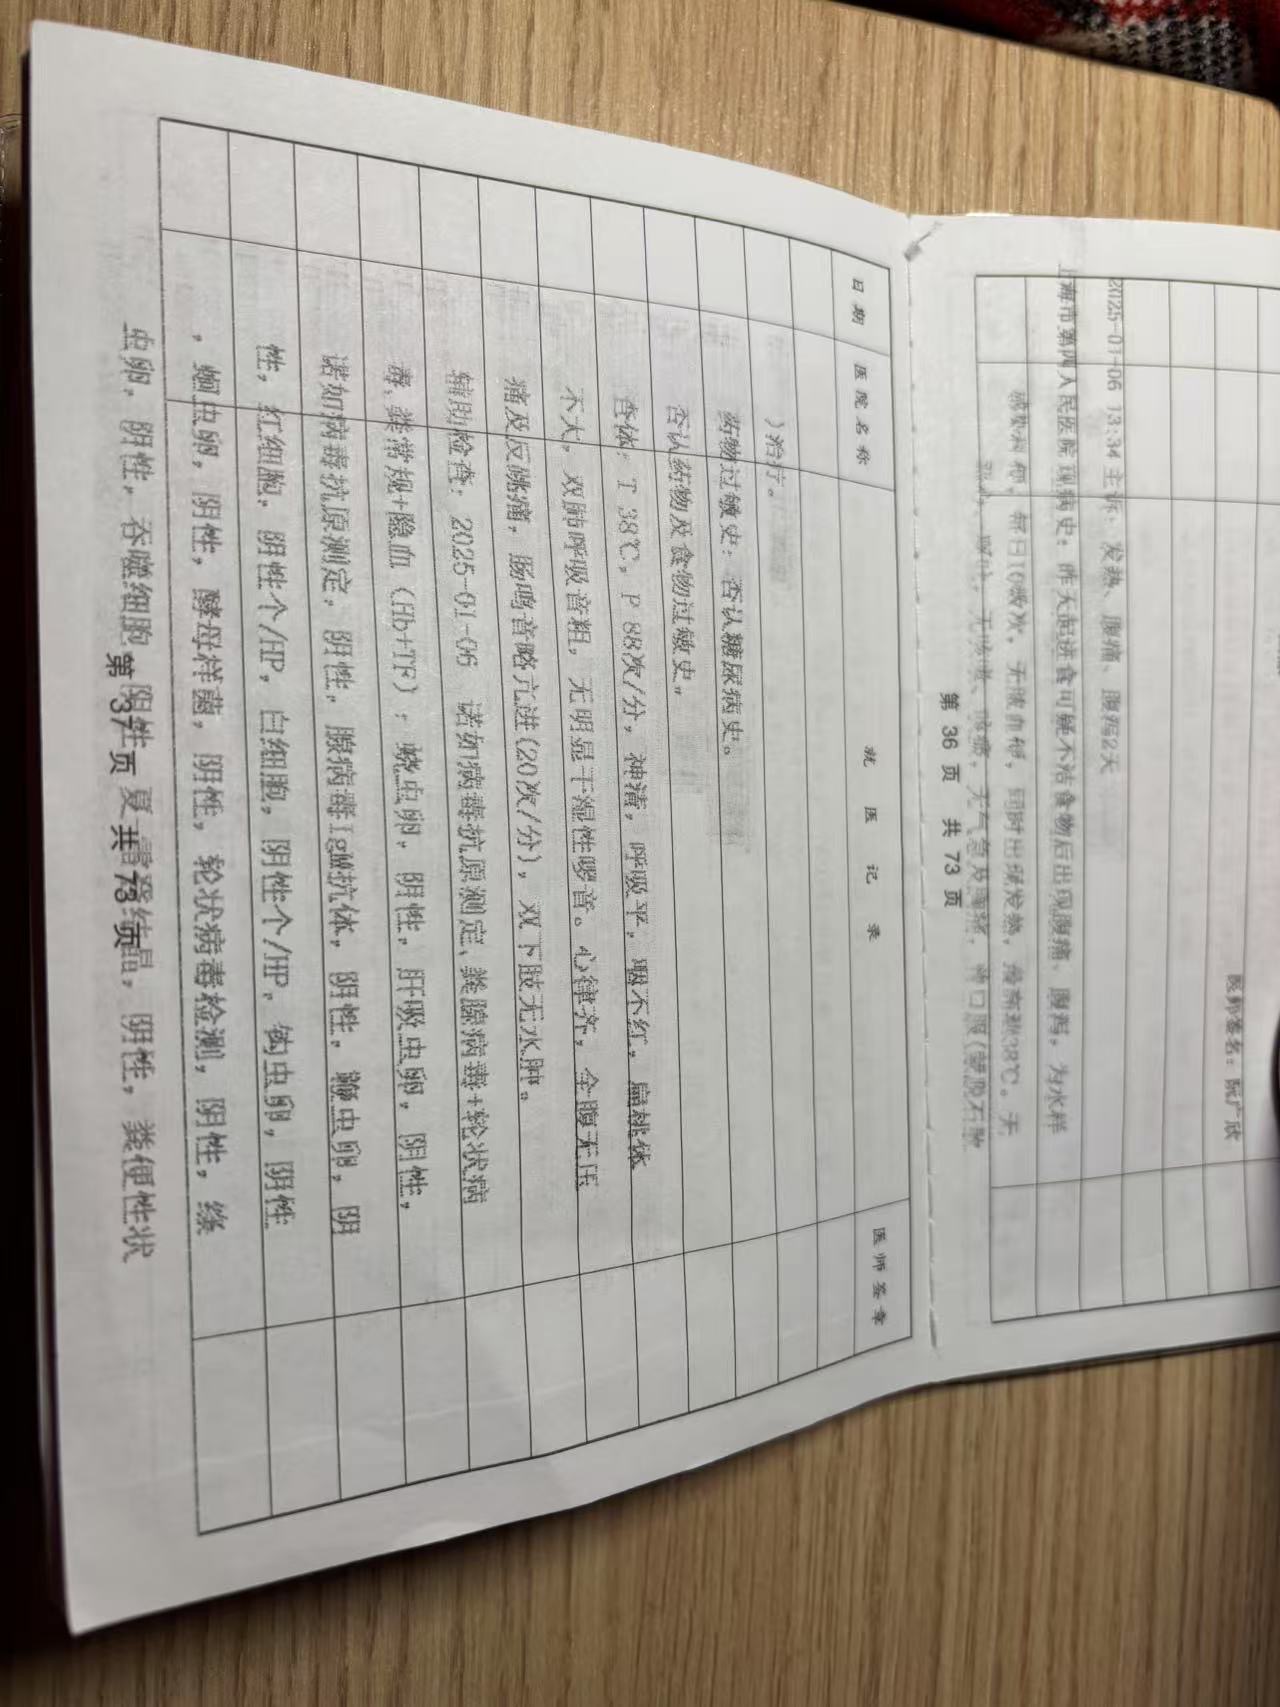 医师签名：阮广欣
2025-01-06 13:34 主诉：发热、腹痛、腹泻2天
上海市第四人民医院 现病史：昨天起进食可疑不洁食物后出现腹痛、腹泻，为水样
感染科 便，每日10余次，无脓血便，同时出现发热，最高热38℃。无
无气急及胸闷，曾口服(蒙脱石散
第 36 页 共 73 页
日期 医院名称 就医记录 医师签章
)治疗。
药物过敏史：否认糖尿病史。
否认药物及食物过敏史。
查体：T 38℃，P 88次/分，神清，呼吸平，咽不红，扁桃体
不大，双肺呼吸音粗，无明显干湿性啰音。心律齐，全腹无压
痛及反跳痛，肠鸣音略亢进(20次/分)，双下肢无水肿。
辅助检查：2025-01-06 诺如病毒抗原测定、粪腺病毒+轮状病
毒、粪常规+隐血（Hb+TF）：蛲虫卵，阴性，肝吸虫卵，阴性，
诺如病毒抗原测定，阴性，腺病毒IgM抗体，阴性，鞭虫卵，阴
性，红细胞，阴性个/HP，白细胞，阴性个/HP，钩虫卵，阴性
，蛔虫卵，阴性，酵母样菌，阴性，轮状病毒检测，阴性，绦
虫卵，阴性，吞噬细胞，阴性，夏-雷登结晶，阴性，粪便性状
第 37 页 共 73 页